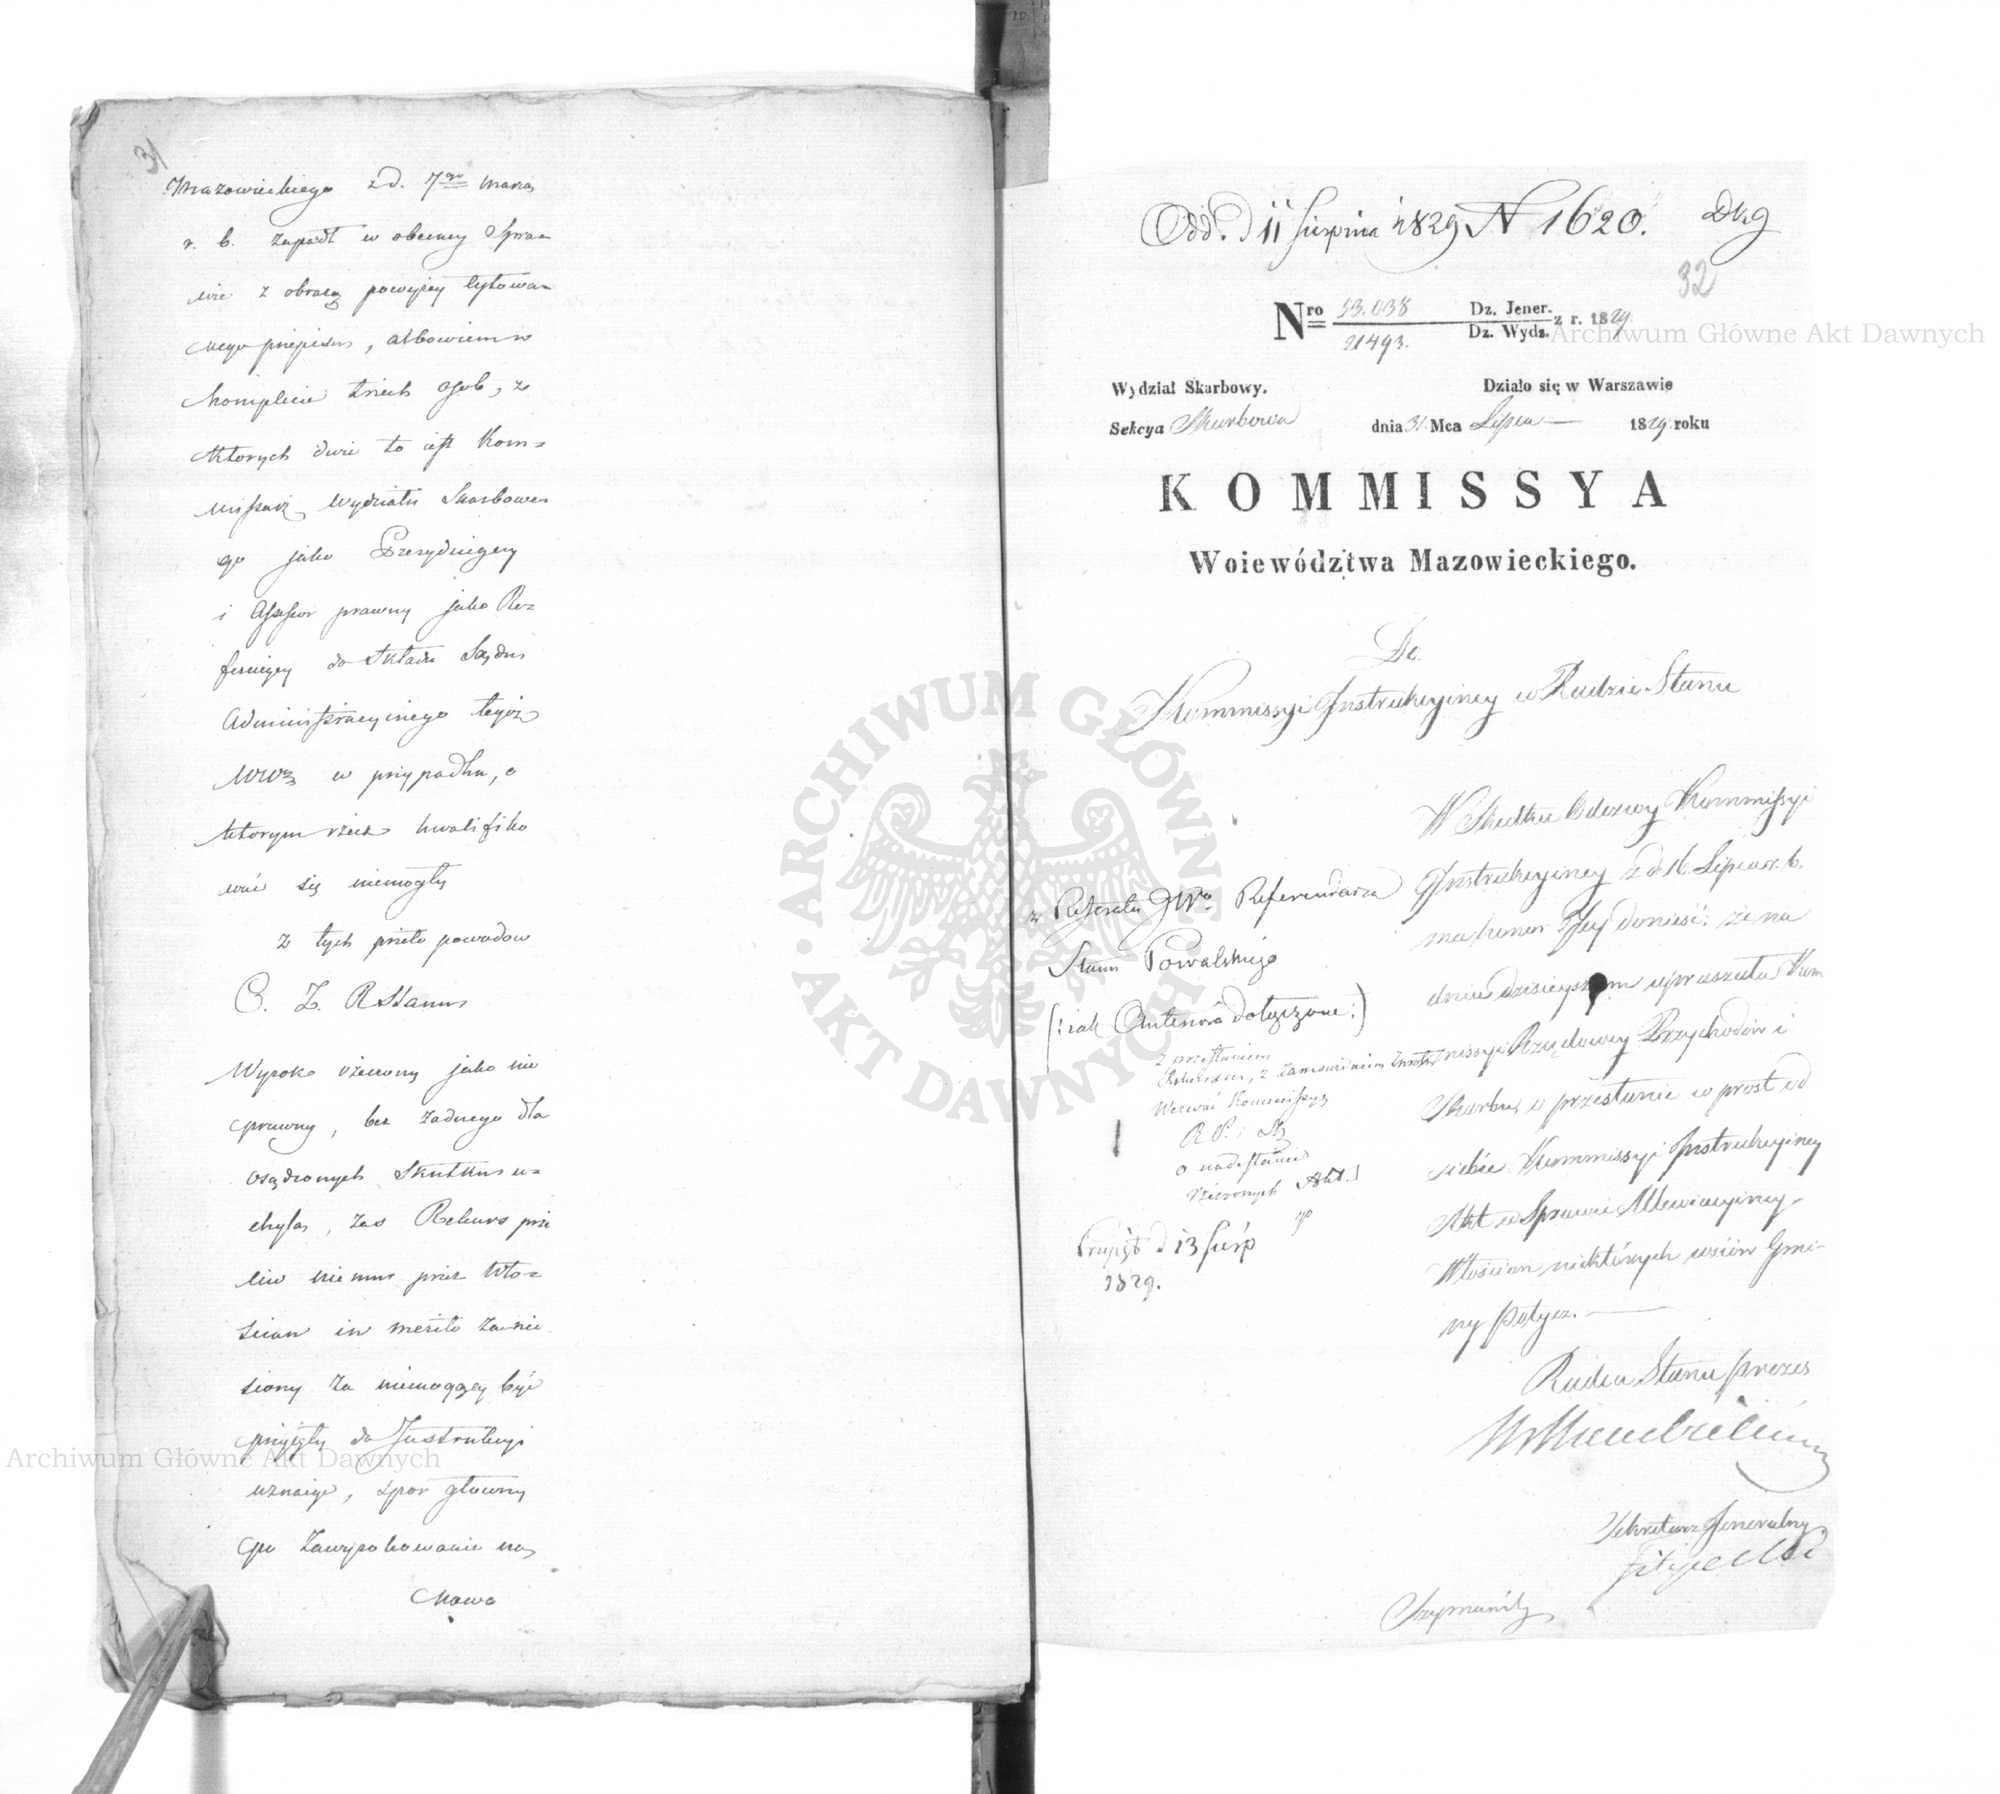 31
Mazowieckiego z d. 7go marca
r. b. zapadł w obecney Spra=
wie z obrazą powyżey cytowa=
nego przepisu, albowiem w
komplecie trzech osob, z
ktorych dwie to iest Kom=
missarz Wydziału Skarbowe=
go jako Prezyduiący
i Assessor prawny jako Re=
feruiący do składu Sądu
Administracyinego teyże
w przypadku, o
ktorym rzecz kwalifiko
wać się niemogły
z tych przeto powodow
C. Z. R Stanu
Wyrok rzeczony jako nie
prawny, bez żadnego dla
osądzonych skutku u=
chyla, zaś Rekurs prze
ciw niemu przez Wło=
scian in merito zanie
siony za niemogący być
przyięty do Instrukcyi
uznaie, spor głowny
po zawyrokowanie na
nowo
Odd. D 11 Sierpnia 1829 N 1620.
32
Nro 53.038 Dz. Jener. z r. 1829.
21493. Dz. Wyds.
Wydział Skarbowy. Działo się w Warszawie
Sekcya Skarbowa dnia 31 Mca Lipca 1829 roku
KOMMISSYA
Woiewództwa Mazowieckiego.
Do
Kommissyi Instrukcyiney w Radzie Stanu
W Skutku Odezwy Kommissyi
Instrukcyiney z d. 16 Lipca r. b.
ma honor Jey donieść: że na
dniu dzisieyszym upraszała Kom
missyi Rządowey Przychodów i
Skarbu, o przesłanie w prost od
siebie Kommissyi Instrukcyiney
Akt w Sprawie
Włościan niektórych wsiów Gmi-
ny Potycz.
Radca Stanu Prezes
Sekretarz Jeneralny
Filipecki
z Referatu JWo Referendarza
Stanu Kowalskiego
(:iak Antenora dołączone:)
z przesłaniem
Rekursu, z zamówieniem zwrotu
Wezwać Kommissyą
R. P. i Sk
o nadesłanie
rzeczonych Akt.
Przyięto d 13 Sierp
1829.
ARCHIWUM GŁÓWNE AKT DAWNYCH
Archiwum Główne Akt Dawnych
Archiwum Główne Akt Dawnych